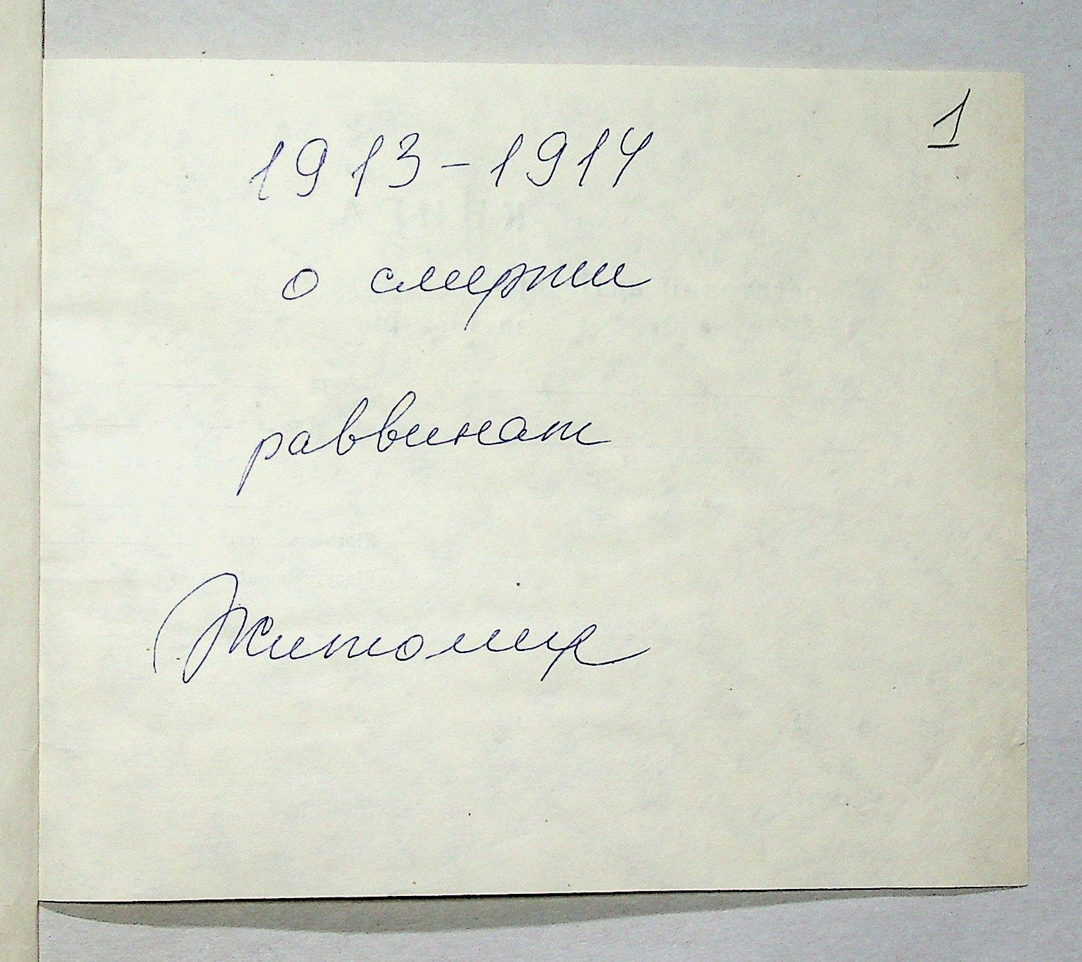 1
1913-1914
о смерти
раввинат
Житомир